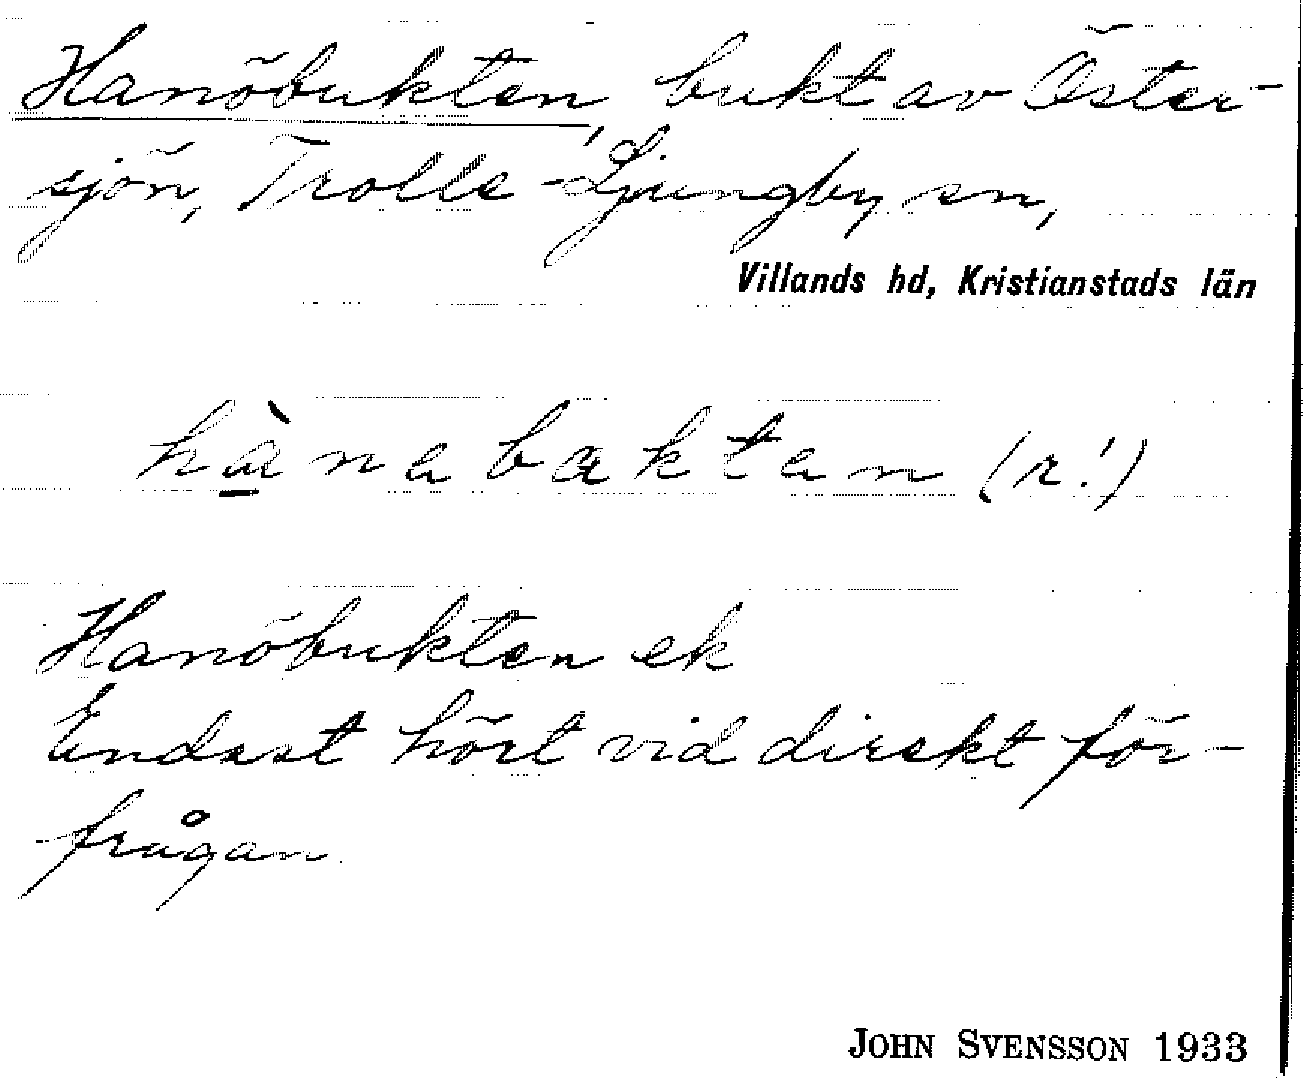 Hanöbukten, bukt av Öster-
sjön, Trolle-Ljungby sn,
Villands hd, Kristianstads län
hànabaktan (r!)
Hanöbukten ek
Endast hört vid direkt för-
frågan.
JOHN SVENSSON 1933